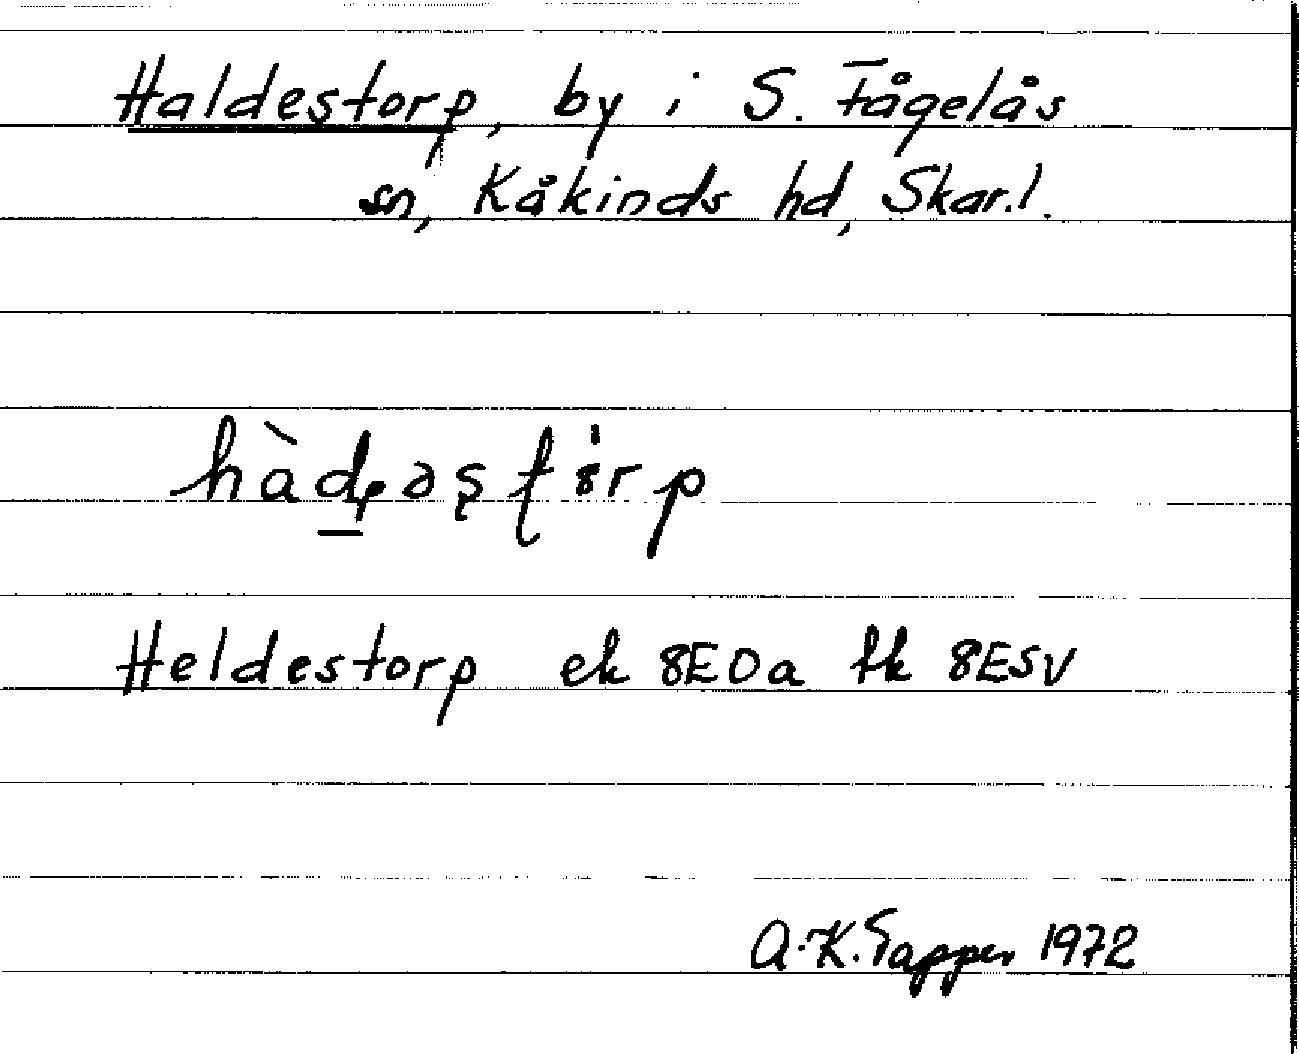 Haldestorp, by i S. Fågelås
sn, Kåkinds hd, Skar.l.
hàdəstörp
Heldestorp ek 8EDa fk 8ESV
A.-K. Tapper 1972